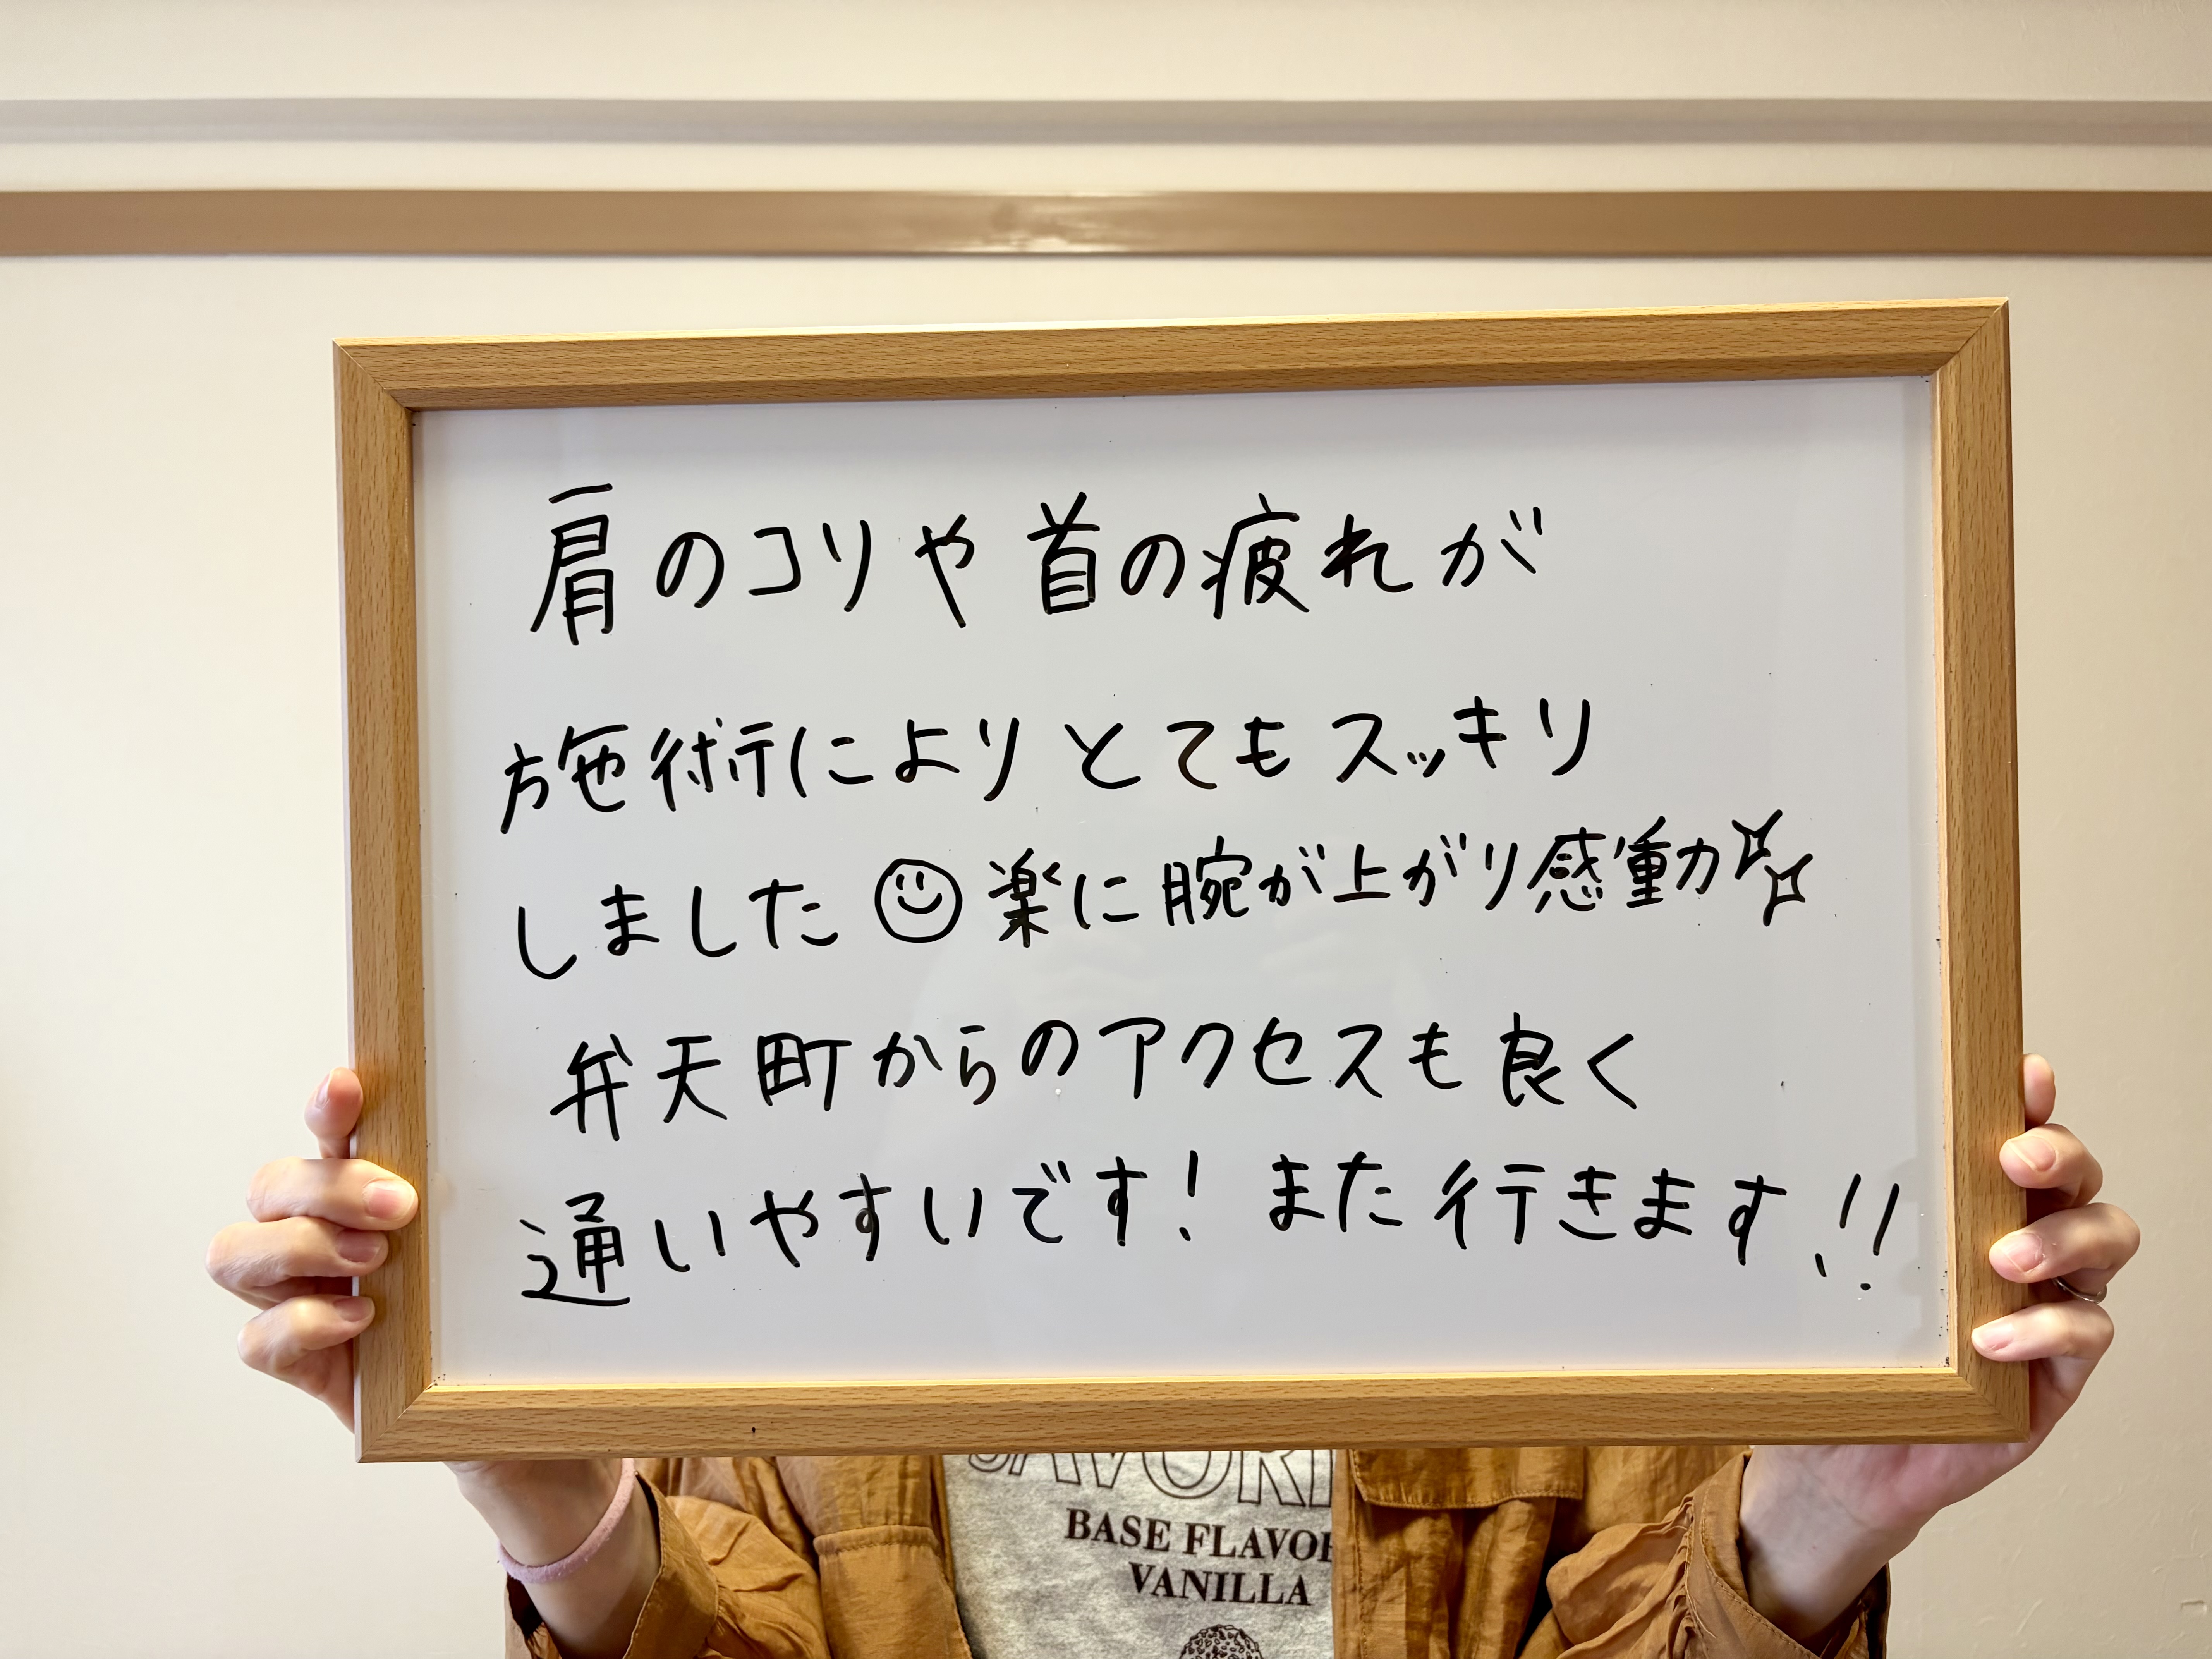 肩のコリや首の疲れが
施術によりとてもスッキリ
しました☺楽に腕が上がり感動✨
弁天町からのアクセスも良く
通いやすいです！また行きます!!
BASE FLAVOR
VANILLA